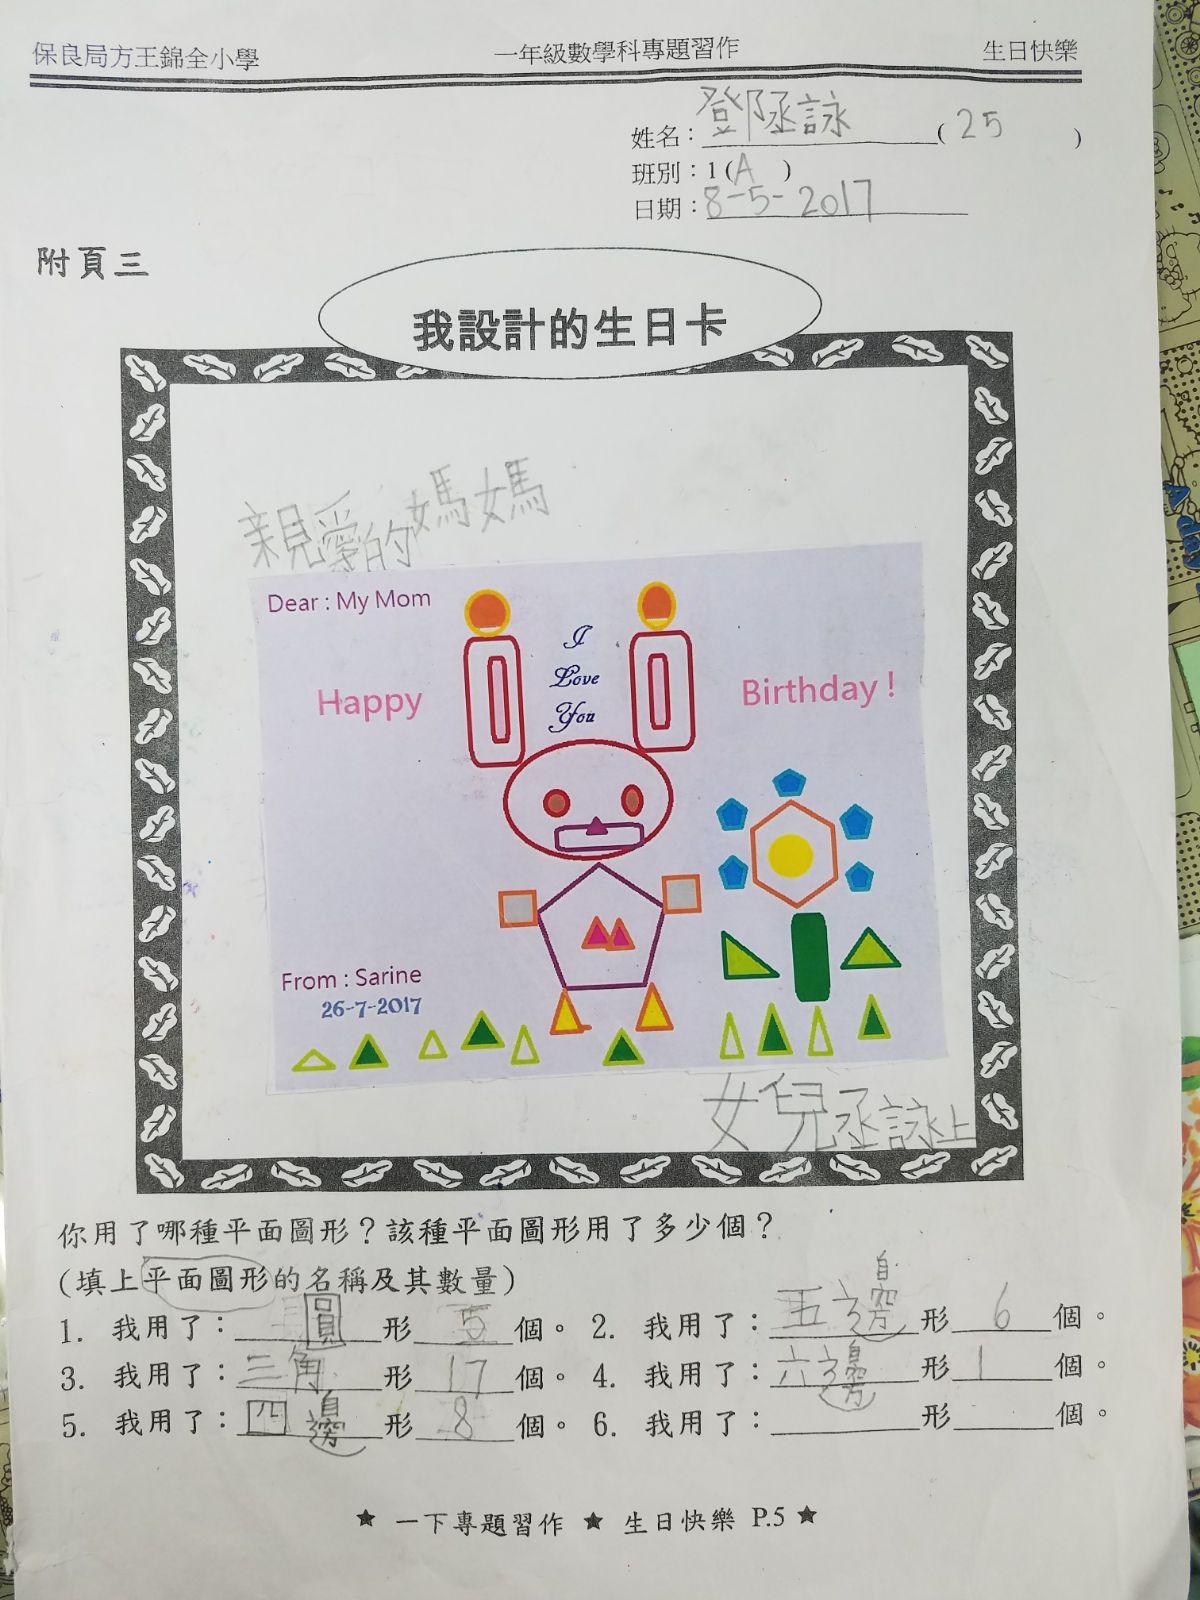 保良局方王錦全小學 一年級數學科專題習作 生日快樂
姓名：鄧丞詠(25)
班別：1(A)
日期：8-5-2017
附頁三
我設計的生日卡
親愛的媽媽
Dear : My Mom
I
Love
You
Happy Birthday !
From : Sarine
26-7-2017
女兒丞詠上
你用了哪種平面圖形？該種平面圖形用了多少個？
(填上平面圖形的名稱及其數量)
1. 我用了：圓形5個。 2. 我用了：五邊形6個。
3. 我用了：三角形17個。 4. 我用了：六邊形1個。
5. 我用了：四邊形8個。 6. 我用了：形個。
★ 一下專題習作 ★ 生日快樂 P.5 ★